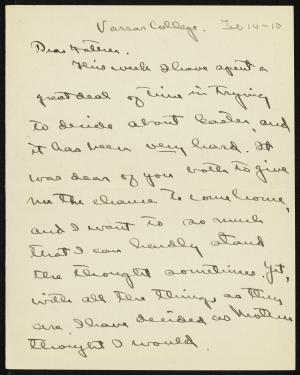 Vassar College. Feb 14-10
Dear Father.
This week I have spent a
great deal of time in trying
to decide about Easter, and
it has been very hard. It
was dear of you both to give
me the chance to come home,
and I want to so much
that I can hardly stand
the thought sometimes. Yet,
with all the things as they
are, I have decided as Mother
thought I would.